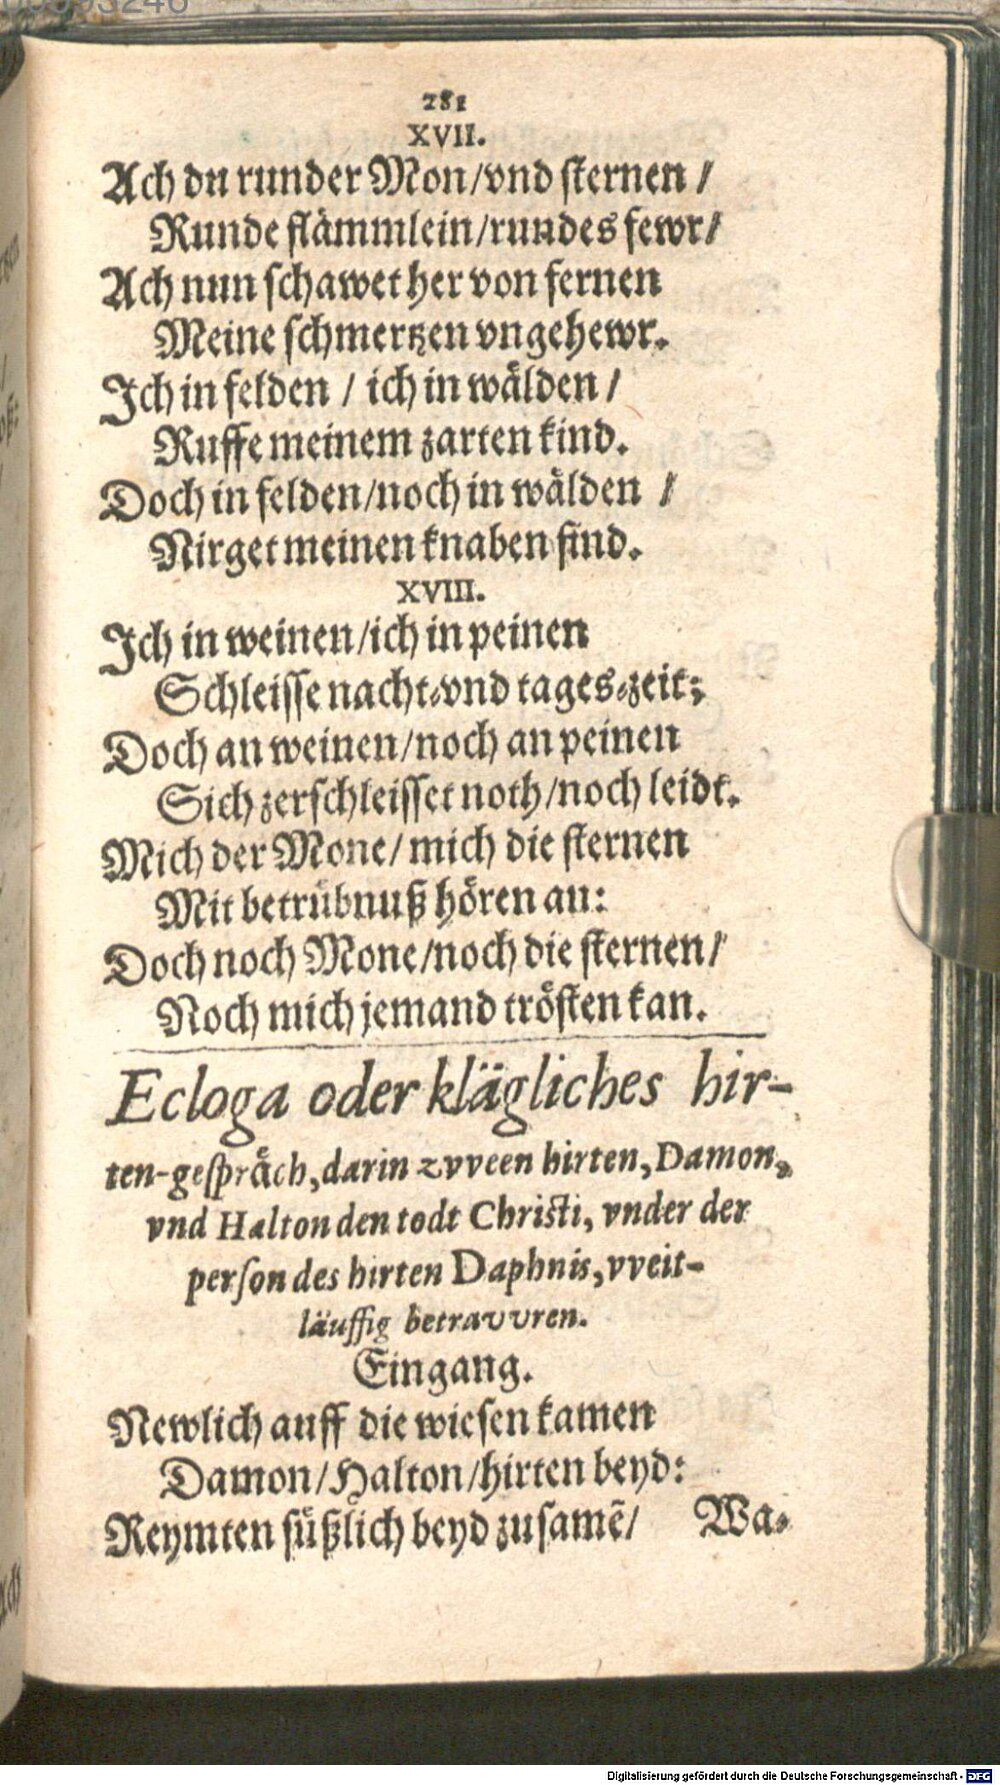 281
XVII.
Ach du runder Mon/vnd sternen /
Runde flämmlein/rundes fewr/
Ach nun schawet her von fernen
Meine schmertzen vngehewr.
Ich in felden / ich in wälden /
Ruffe meinem zarten kind.
Doch in felden/noch in wälden /
Nirget meinen knaben find.
XVIII.
Ich in weinen/ich in peinen
Schleisse nacht-vnd tages-zeit;
Doch an weinen/noch an peinen
Sich zerschleisset noth/noch leidt.
Mich der Mone/ mich die sternen
Mit betrübnuß hören an:
Doch noch Mone/noch die sternen/
Noch mich jemand trösten kan.
Ecloga oder klägliches hir-
ten-gespräch, darin zvveen hirten, Damon,
vnd Halton den todt Christi, vnder der
person des hirten Daphnis, vveit-
läuffig betravvren.
Eingang.
Newlich auff die wiesen kamen
Damon/Halton/hirten beyd:
Reymten süßlich beyd zusamẽ/ Wa-
Digitalisierung gefördert durch die Deutsche Forschungsgemeinschaft - DFG